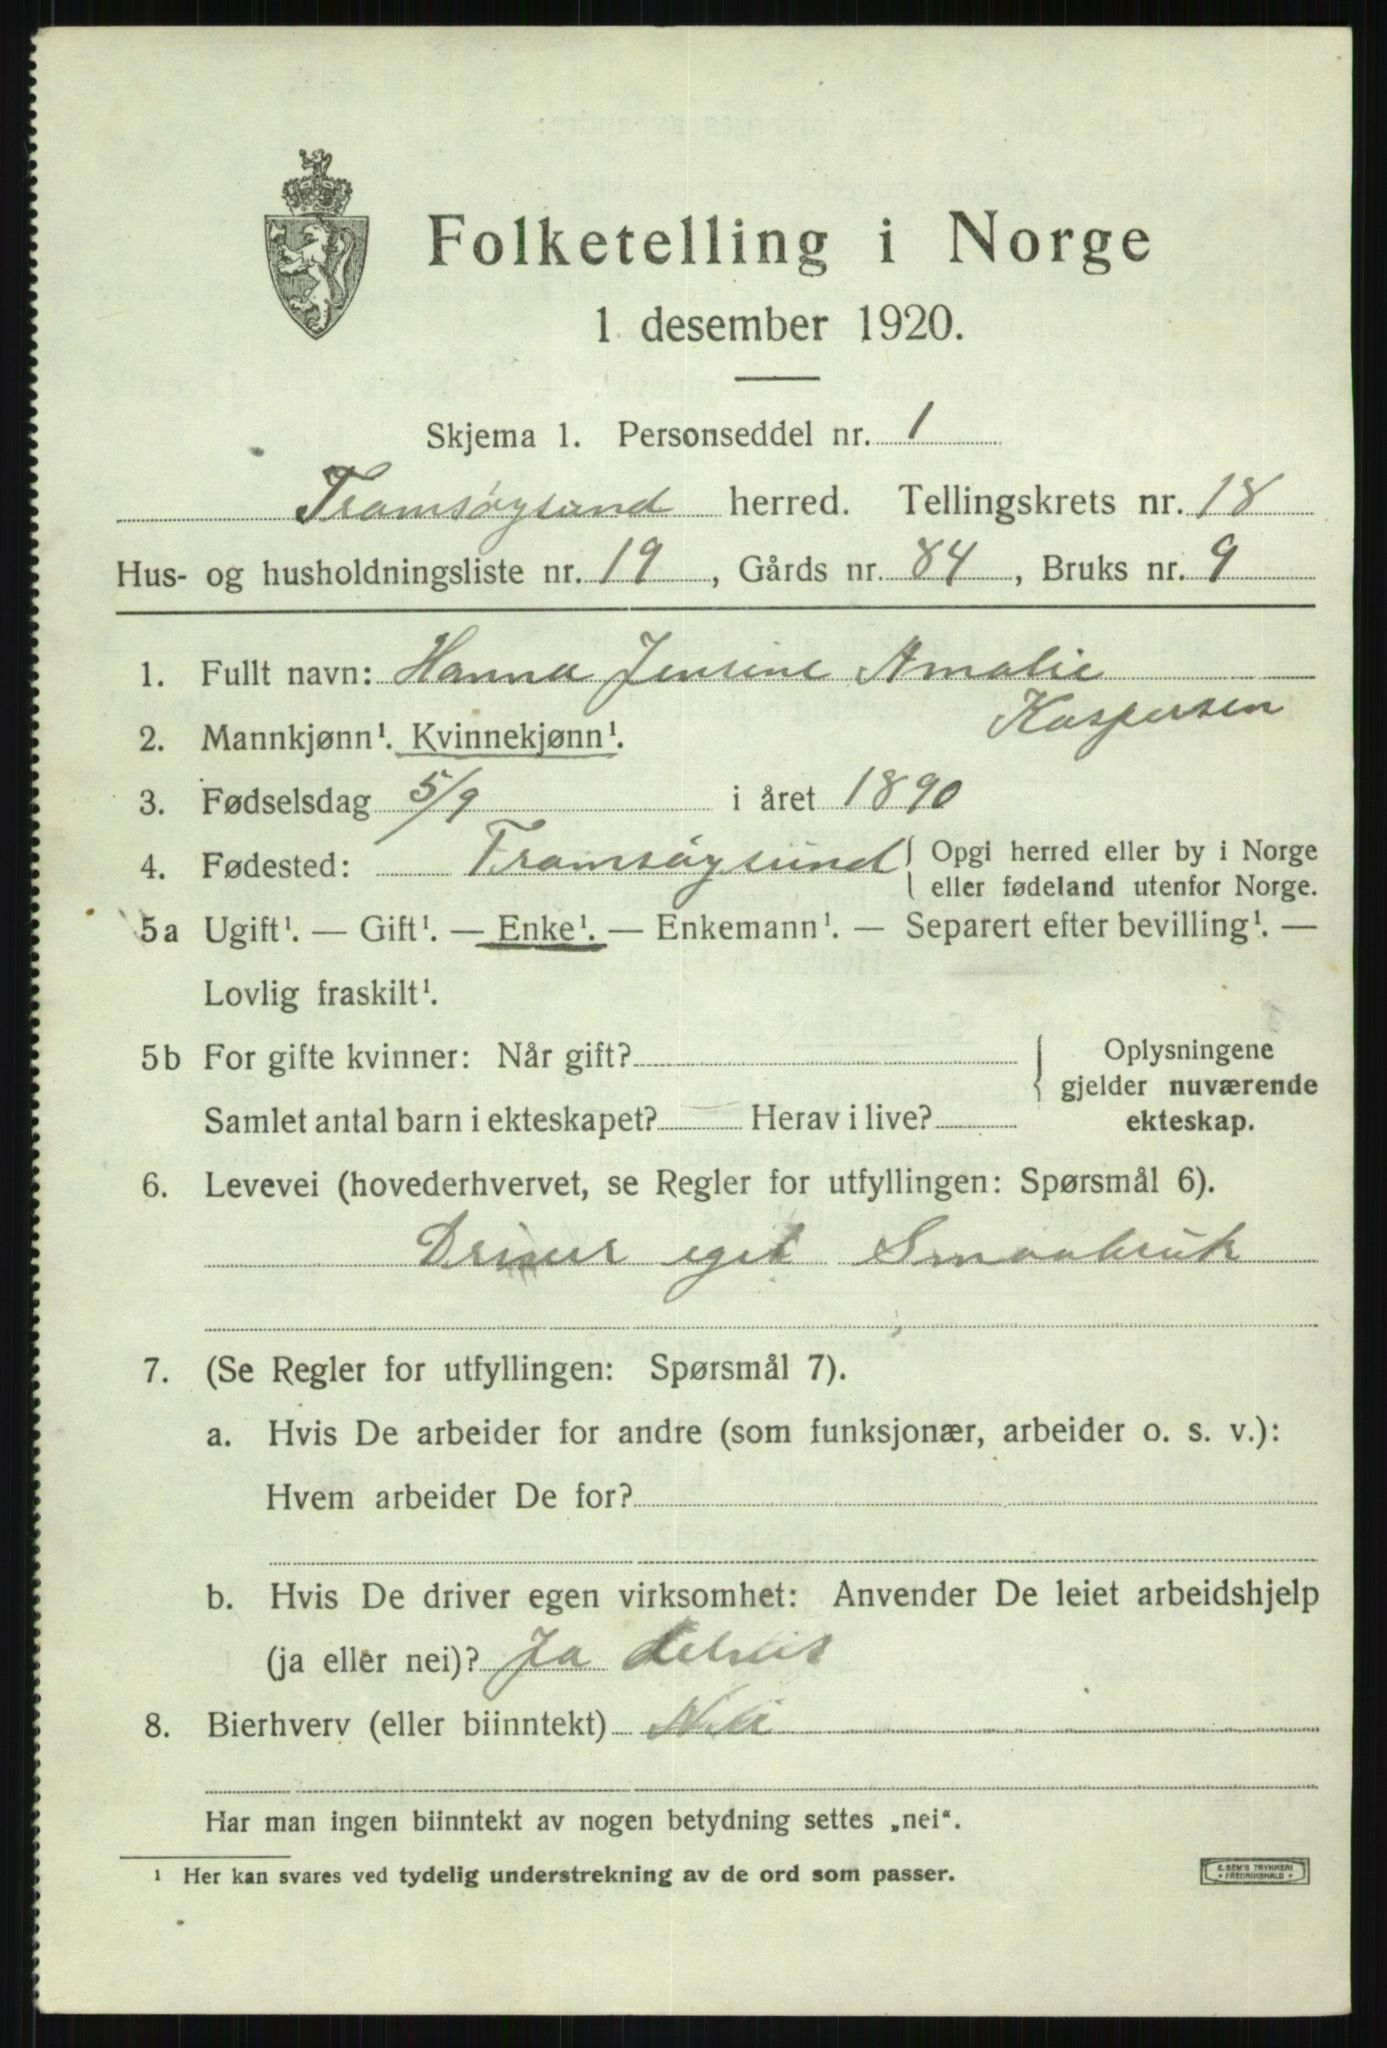 Folketelling i Norge
1 desember 1920.
Skjema 1. Personseddel nr. 1
Tromsøysund herred. Tellingskrets nr. 18
Hus- og husholdningsliste nr. 19, Gårds nr. 84, Bruks nr. 9
1. Fullt navn: Hanna Jensine Amalie
Kaspersen
2. Mannkjønn¹. Kvinnekjønn¹.
3. Fødselsdag 5/9 i året 1890
4. Fødested: Tromsøysund { Opgi herred eller by i Norge
eller fødeland utenfor Norge.
5a Ugift¹. — Gift¹. — Enke¹. — Enkemann¹. — Separert efter bevilling¹. —
Lovlig fraskilt¹.
5b For gifte kvinner: Når gift? { Oplysningene
gjelder nuværende
Samlet antal barn i ekteskapet? Herav i live? ekteskap.
6. Levevei (hovederhvervet, se Regler for utfyllingen: Spørsmål 6).
Driver eget Smaabruk
7. (Se Regler for utfyllingen: Spørsmål 7).
a. Hvis De arbeider for andre (som funksjonær, arbeider o. s. v.):
Hvem arbeider De for?
b. Hvis De driver egen virksomhet: Anvender De leiet arbeidshjelp
(ja eller nei)? Ja delvis
8. Bierhverv (eller biinntekt) Nei
Har man ingen biinntekt av nogen betydning settes „nei“.
¹ Her kan svares ved tydelig understrekning av de ord som passer.
E. SEM'S TRYKKERI
• FREDRIKSHALD •